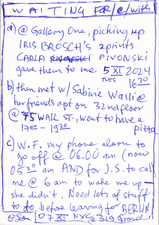 WAITING FOR/@/with/
a) @ Gallery One, picking up
IRIS BROSCH'S 2 prints
CARLA PIVONSKI
gave them to me 5 XI 2024
1630
b) then met w/ Sabine Wallie @
her friends apt on 32nd floor
@ 75 WALL ST, went to have a
17 – 1930 pizza
c) W.F. my phone alarm to
go off @ 06.00 am (now
05 30 am AND for J.S. to call
me @ 6 am to wake me up
she didn't. Need lots of stuff
to do before leaving to BERLIN
07 XI NYC